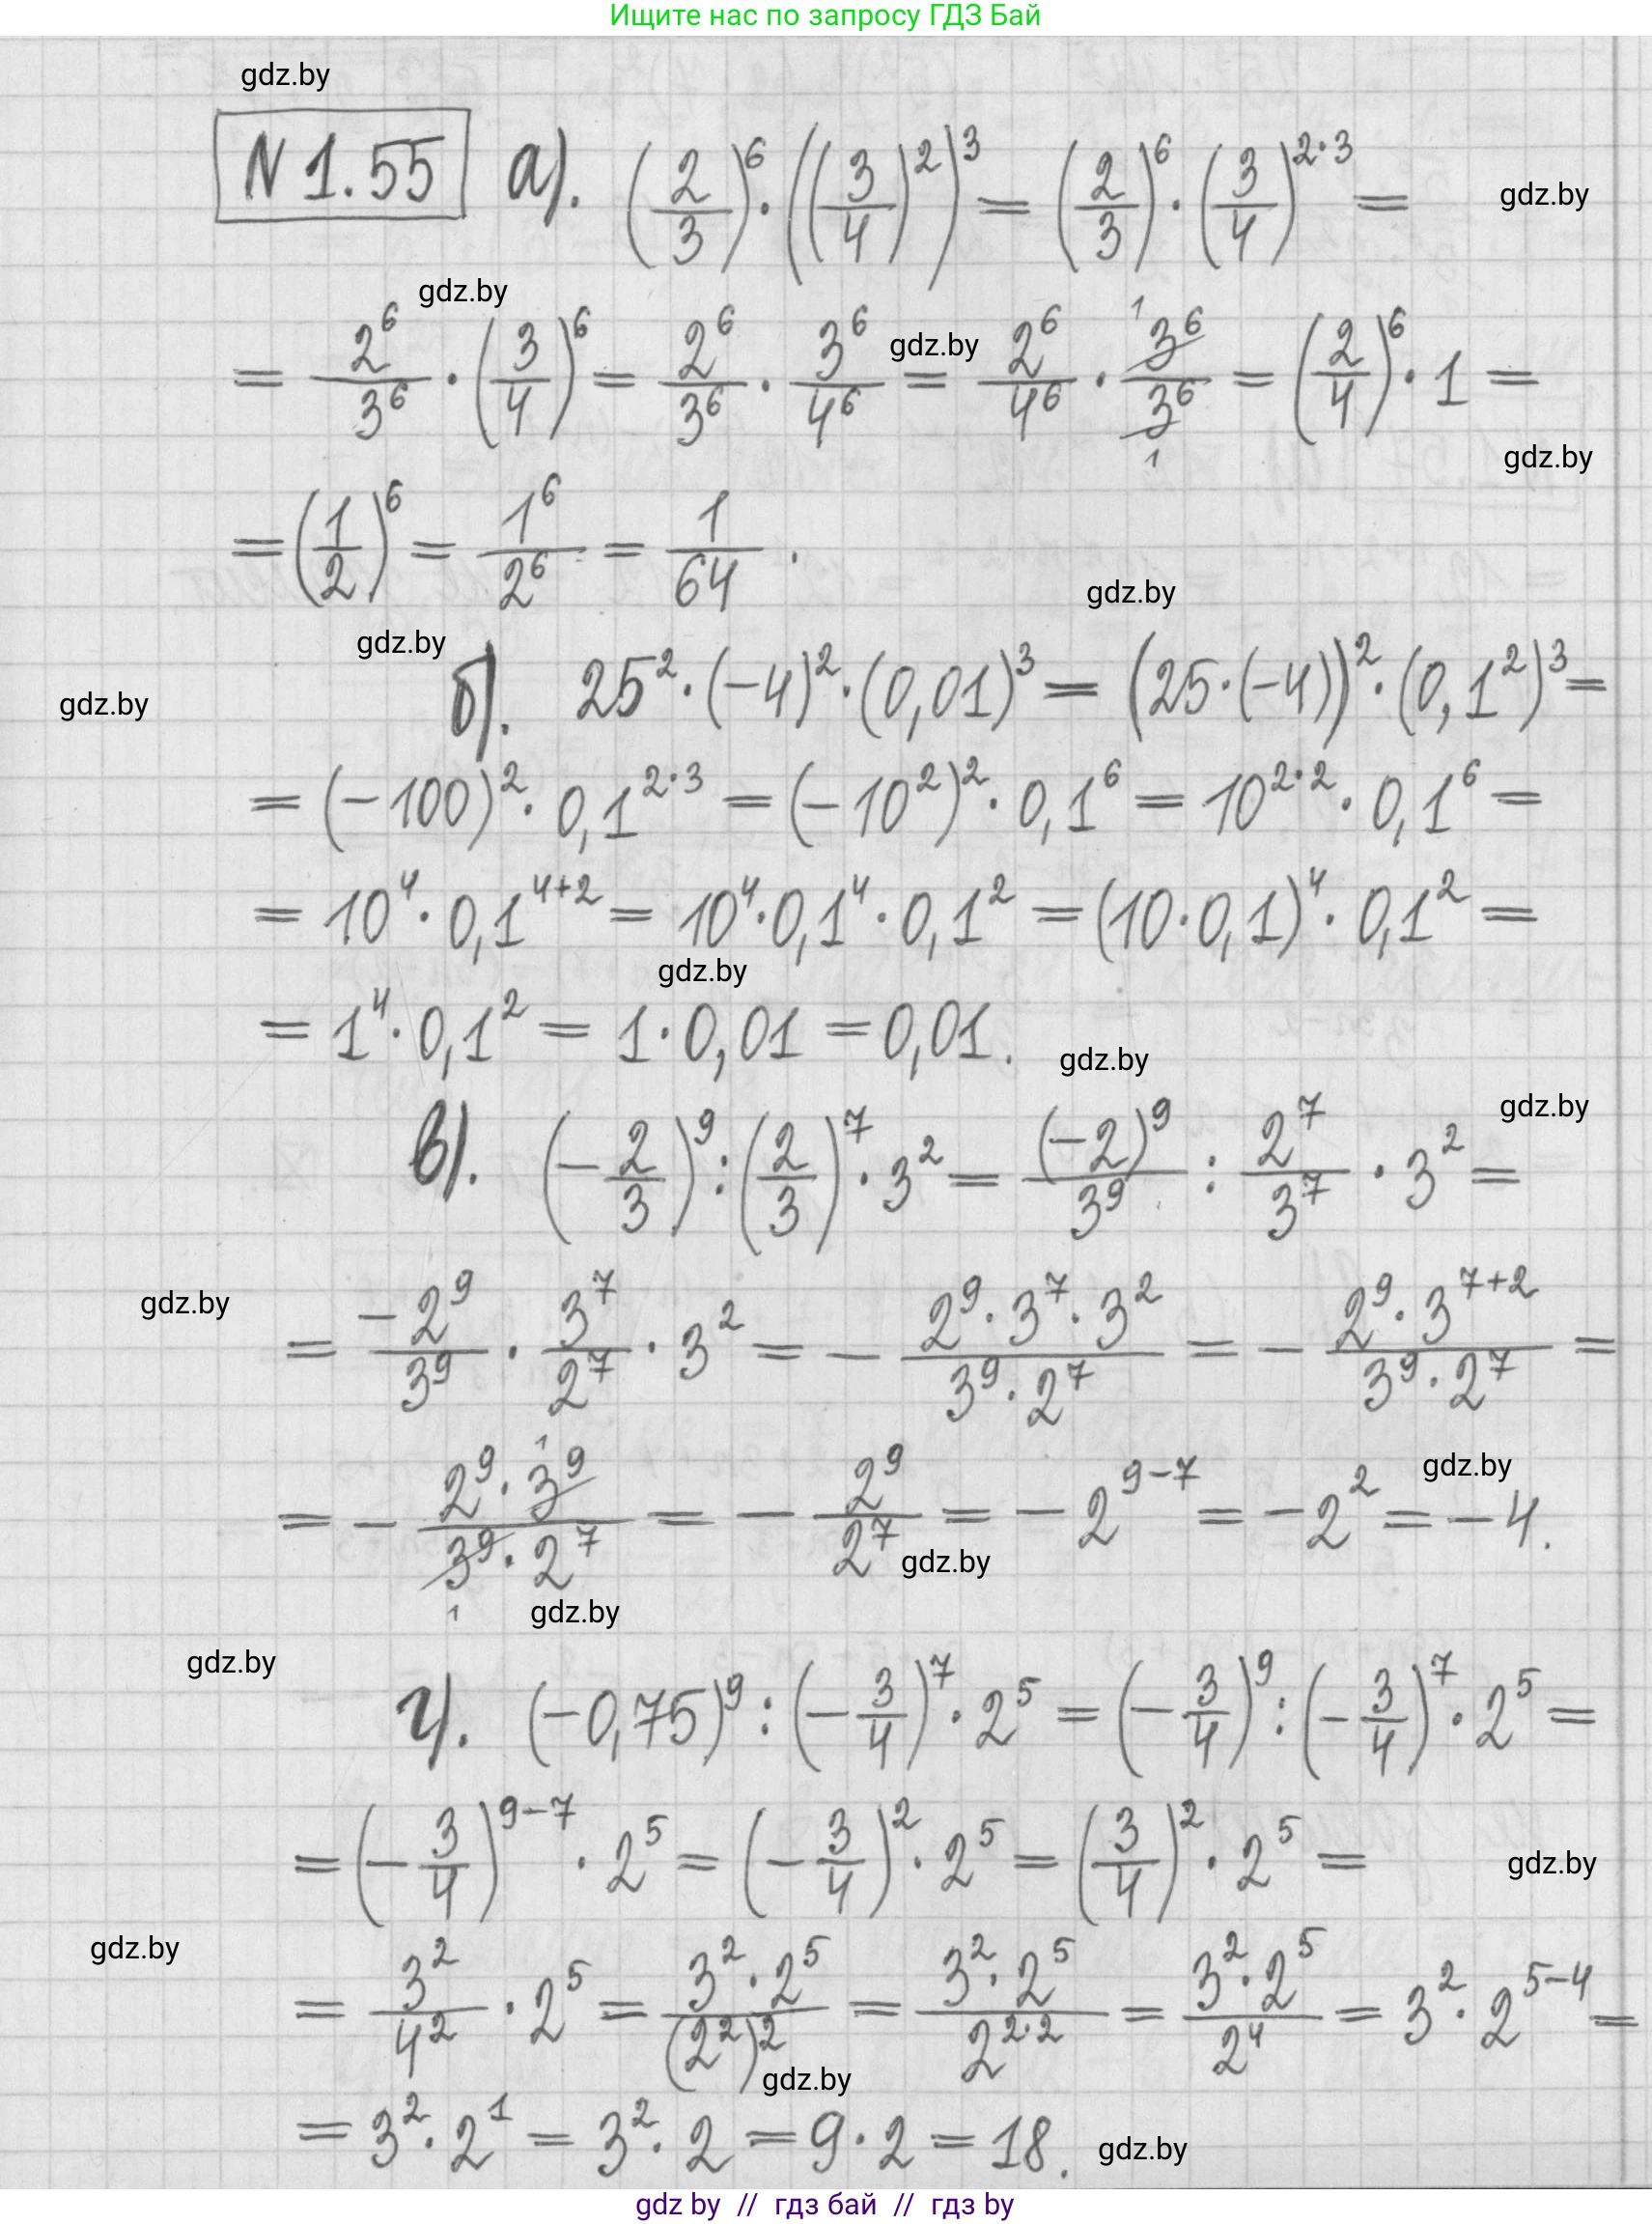 Ищите нас по запросу ГДЗ Бай
gdz.by
N 1.55 а). (2/3)^6 · ((3/4)^2)^3 = (2/3)^6 · (3/4)^{2·3} =
gdz.by
gdz.by
= 2^6/3^6 · (3/4)^6 = 2^6/3^6 · 3^6/4^6 = 2^6/4^6 · 3^6/3^6 = (2/4)^6 · 1 =
gdz.by
gdz.by
= (1/2)^6 = 1^6/2^6 = 1/64.
gdz.by
gdz.by
б). 25^2 · (-4)^2 · (0,01)^3 = (25 · (-4))^2 · (0,1^2)^3 =
gdz.by
= (-100)^2 · 0,1^{2·3} = (-10^2)^2 · 0,1^6 = 10^{2·2} · 0,1^6 =
= 10^4 · 0,1^{4+2} = 10^4 · 0,1^4 · 0,1^2 = (10 · 0,1)^4 · 0,1^2 =
gdz.by
= 1^4 · 0,1^2 = 1 · 0,01 = 0,01.
gdz.by
gdz.by
в). (-2/3)^9 : (2/3)^7 · 3^2 = (-2)^9/3^9 : 2^7/3^7 · 3^2 =
gdz.by
= -2^9/3^9 · 3^7/2^7 · 3^2 = - 2^9 · 3^7 · 3^2/3^9 · 2^7 = - 2^9 · 3^{7+2}/3^9 · 2^7 =
gdz.by
= - 2^9 · 3^9/3^9 · 2^7 = - 2^9/2^7 = -2^{9-7} = -2^2 = -4.
gdz.by
gdz.by
gdz.by
г). (-0,75)^9 : (-3/4)^7 · 2^5 = (-3/4)^9 : (-3/4)^7 · 2^5 =
= (-3/4)^{9-7} · 2^5 = (-3/4)^2 · 2^5 = (3/4)^2 · 2^5 =
gdz.by
gdz.by
= 3^2/4^2 · 2^5 = 3^2 · 2^5/(2^2)^2 = 3^2 · 2^5/2^{2·2} = 3^2 · 2^5/2^4 = 3^2 · 2^{5-4} =
gdz.by
= 3^2 · 2^1 = 3^2 · 2 = 9 · 2 = 18.
gdz.by
gdz by // гдз бай // гдз by